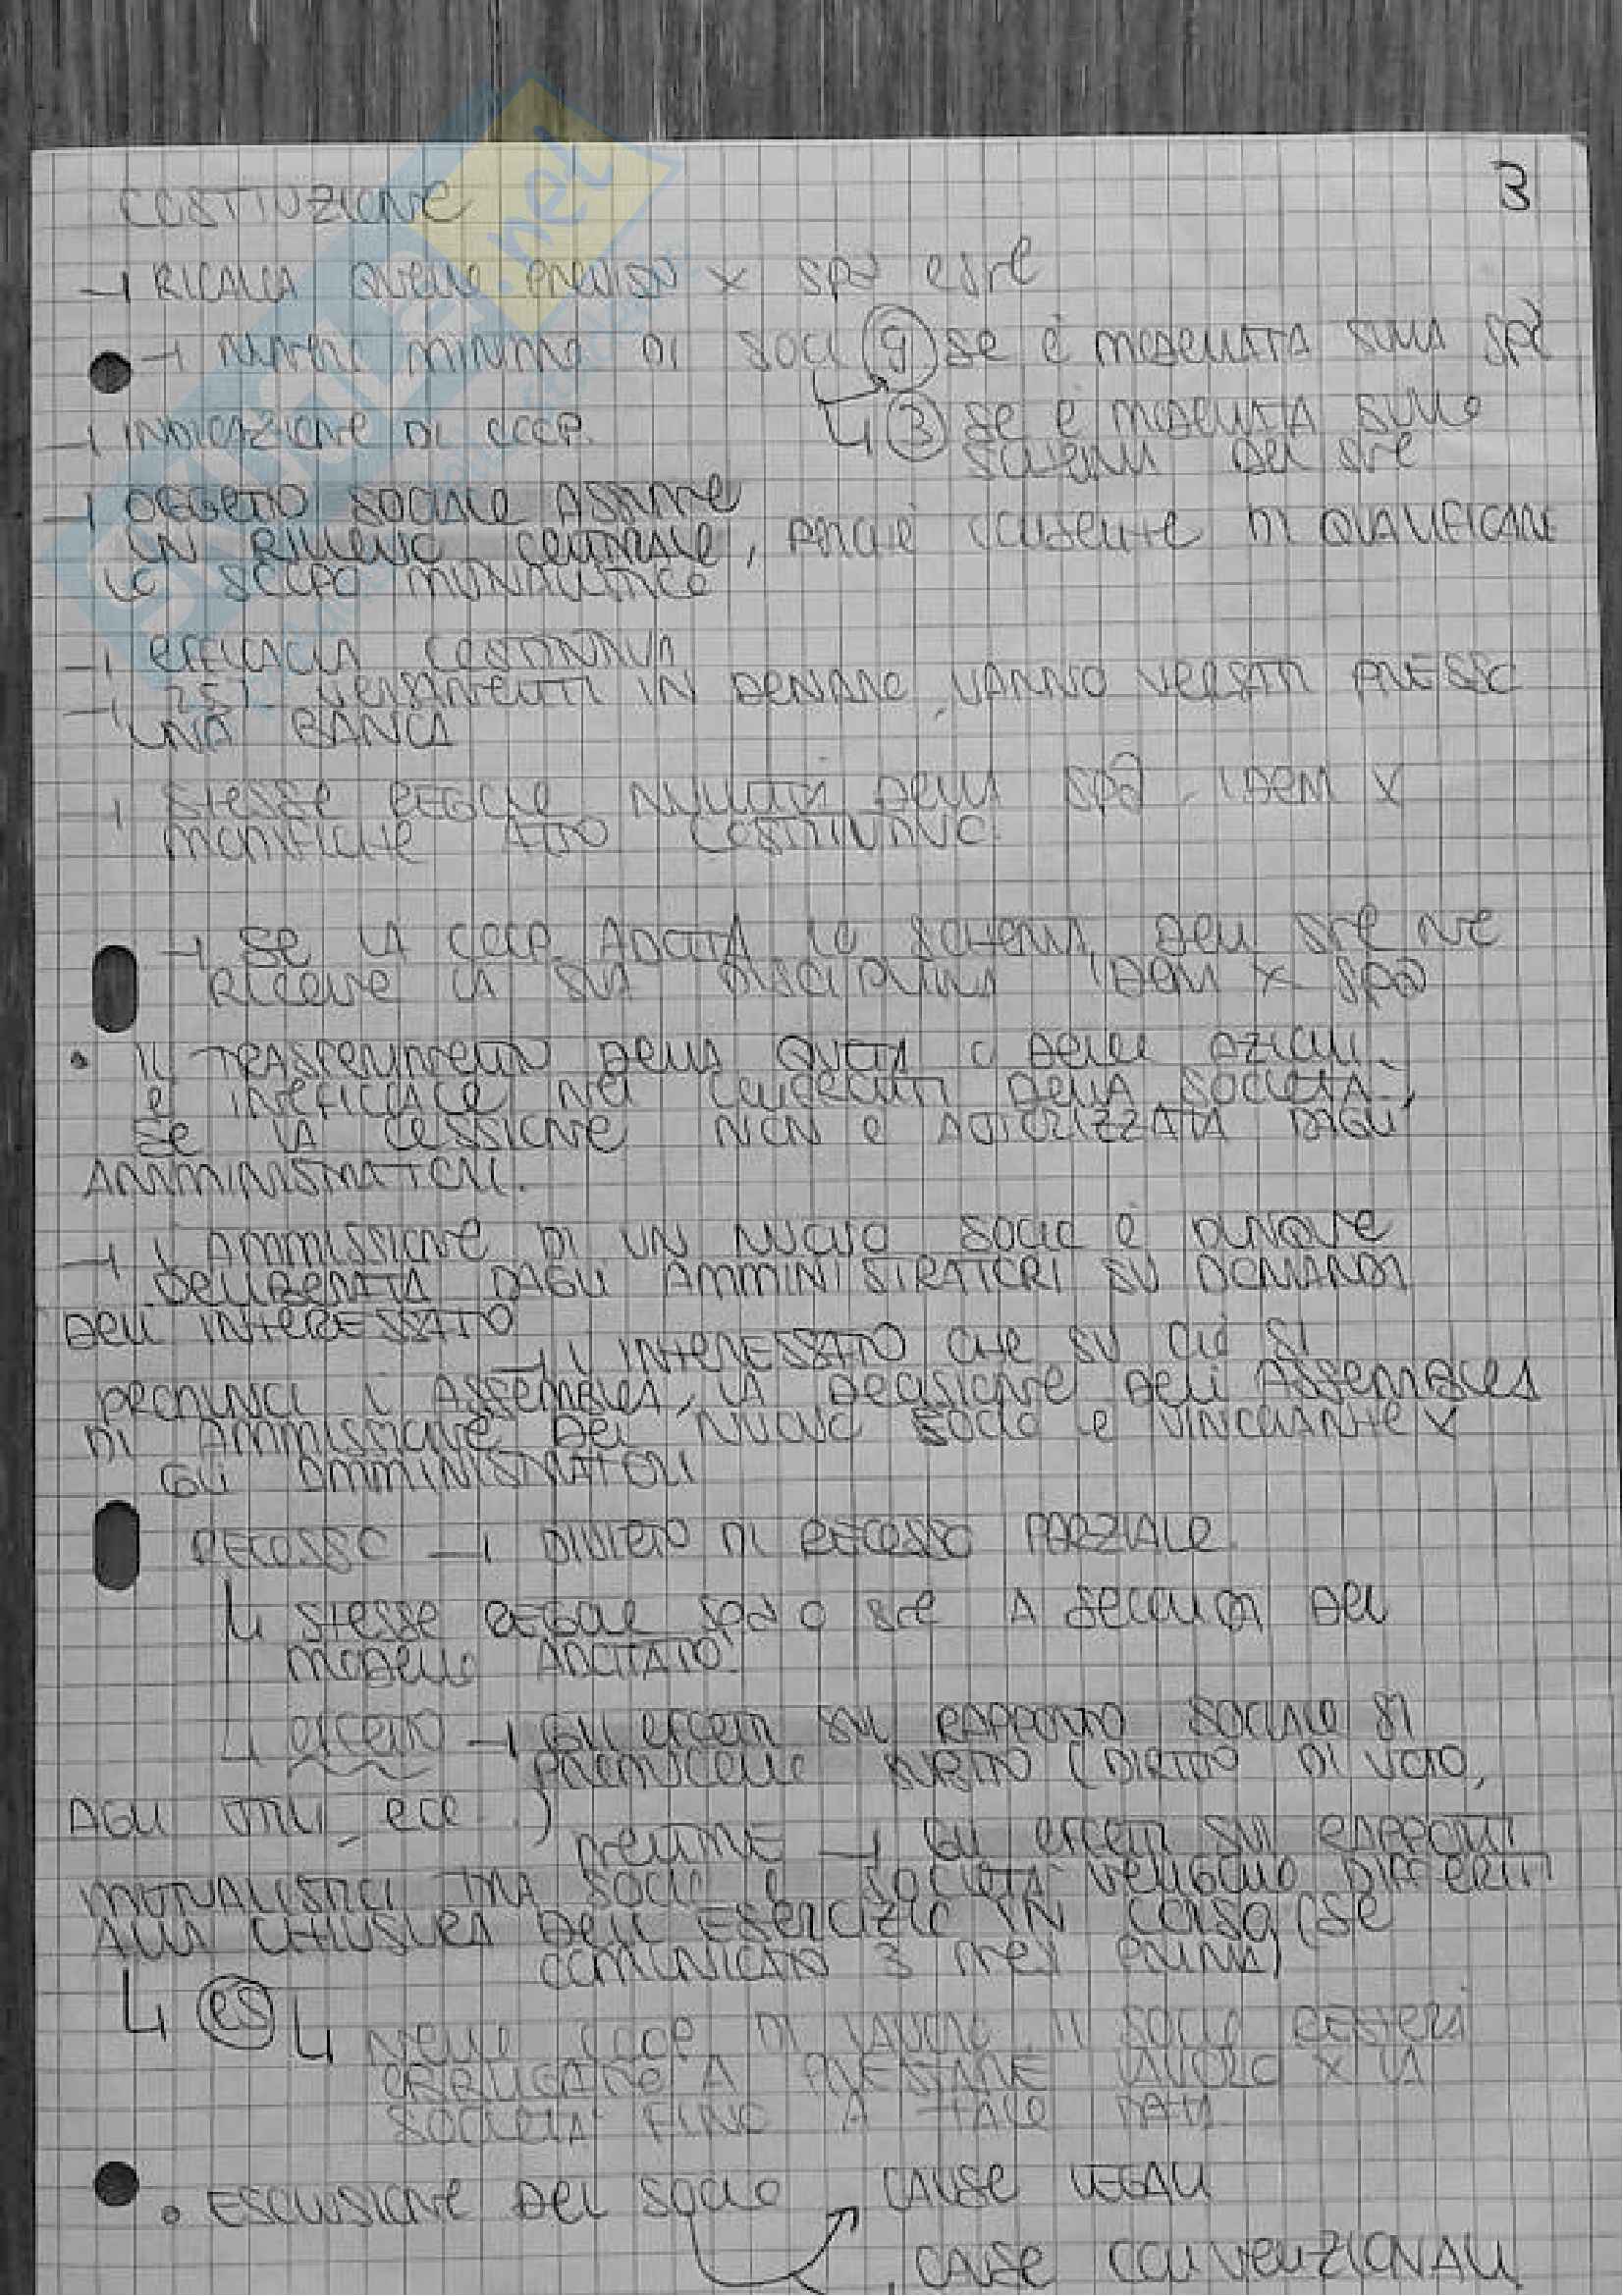 3
COSTITUZIONE
→ RICALCA QUELLE PREVISTO x spa e srl
→ NUMERO MINIMO DI SOCI 9 se è modellata sulla spa
→ INDICAZIONE DI COOP.
↳ 3 se è modellata sullo
schema della srl
→ OGGETTO SOCIALE ASSUME
UN RILIEVO CENTRALE, perché consente di QUALIFICARE
LO SCOPO MUTUALISTICO
→ EFFICACIA COSTITUTIVA
→ 25% VERSAMENTI IN DENARO VANNO VERSATI PRESSO
UNA BANCA
→ STESSE REGOLE NULLITÀ DELLA SPA. IDEM x
MODIFICHE ATTO COSTITUTIVO.
→ SE LA COOP. ADOTTA LO SCHEMA DELLA SRL NE
RICEVE LA SUA DISCIPLINA IDEM x SPA
• IL TRASFERIMENTO DELLA QUOTA O DELLE AZIONI
è INEFFICACE NEI CONFRONTI DELLA SOCIETÀ,
SE LA CESSIONE NON è AUTORIZZATA DAGLI
AMMINISTRATORI.
→ L'AMMISSIONE DI UN NUOVO SOCIO è DUNQUE
DELIBERATA DAGLI AMMINISTRATORI SU DOMANDA
DELL'INTERESSATO
→ L'INTERESSATO CHE SU CIÒ SI
PRONUNCI L'ASSEMBLEA, LA DECISIONE DELL'ASSEMBLEA
DI AMMISSIONE DEL NUOVO SOCIO è VINCOLANTE x
GLI AMMINISTRATORI
RECESSO → DIVIETO DI RECESSO PARZIALE
↳ STESSE REGOLE SPA O SRL A SECONDA DEL
MODELLO ADOTTATO.
↳ effetto → GLI effetti SUL RAPPORTO SOCIALE SI
PRODUCONO SUBITO (DIRITTO DI VOTO,
AGLI UTILI, ecc..)
MENTRE → GLI effetti SUI RAPPORTI
MUTUALISTICI TRA SOCIO e SOCIETÀ VENGONO DIFFERITI
ALLA CHIUSURA DELL'ESERCIZIO IN CORSO (SE
COMUNICATO 3 MESI PRIMA)
↳ es ↳ NELLE COOP DI LAVORO IL SOCIO RESTERÀ
OBBLIGATO A PRESTARE LAVORO x LA
SOCIETÀ FINO A TALE DATA
• ESCLUSIONE DEL SOCIO CAUSE LEGALI
CAUSE CONVENZIONALI